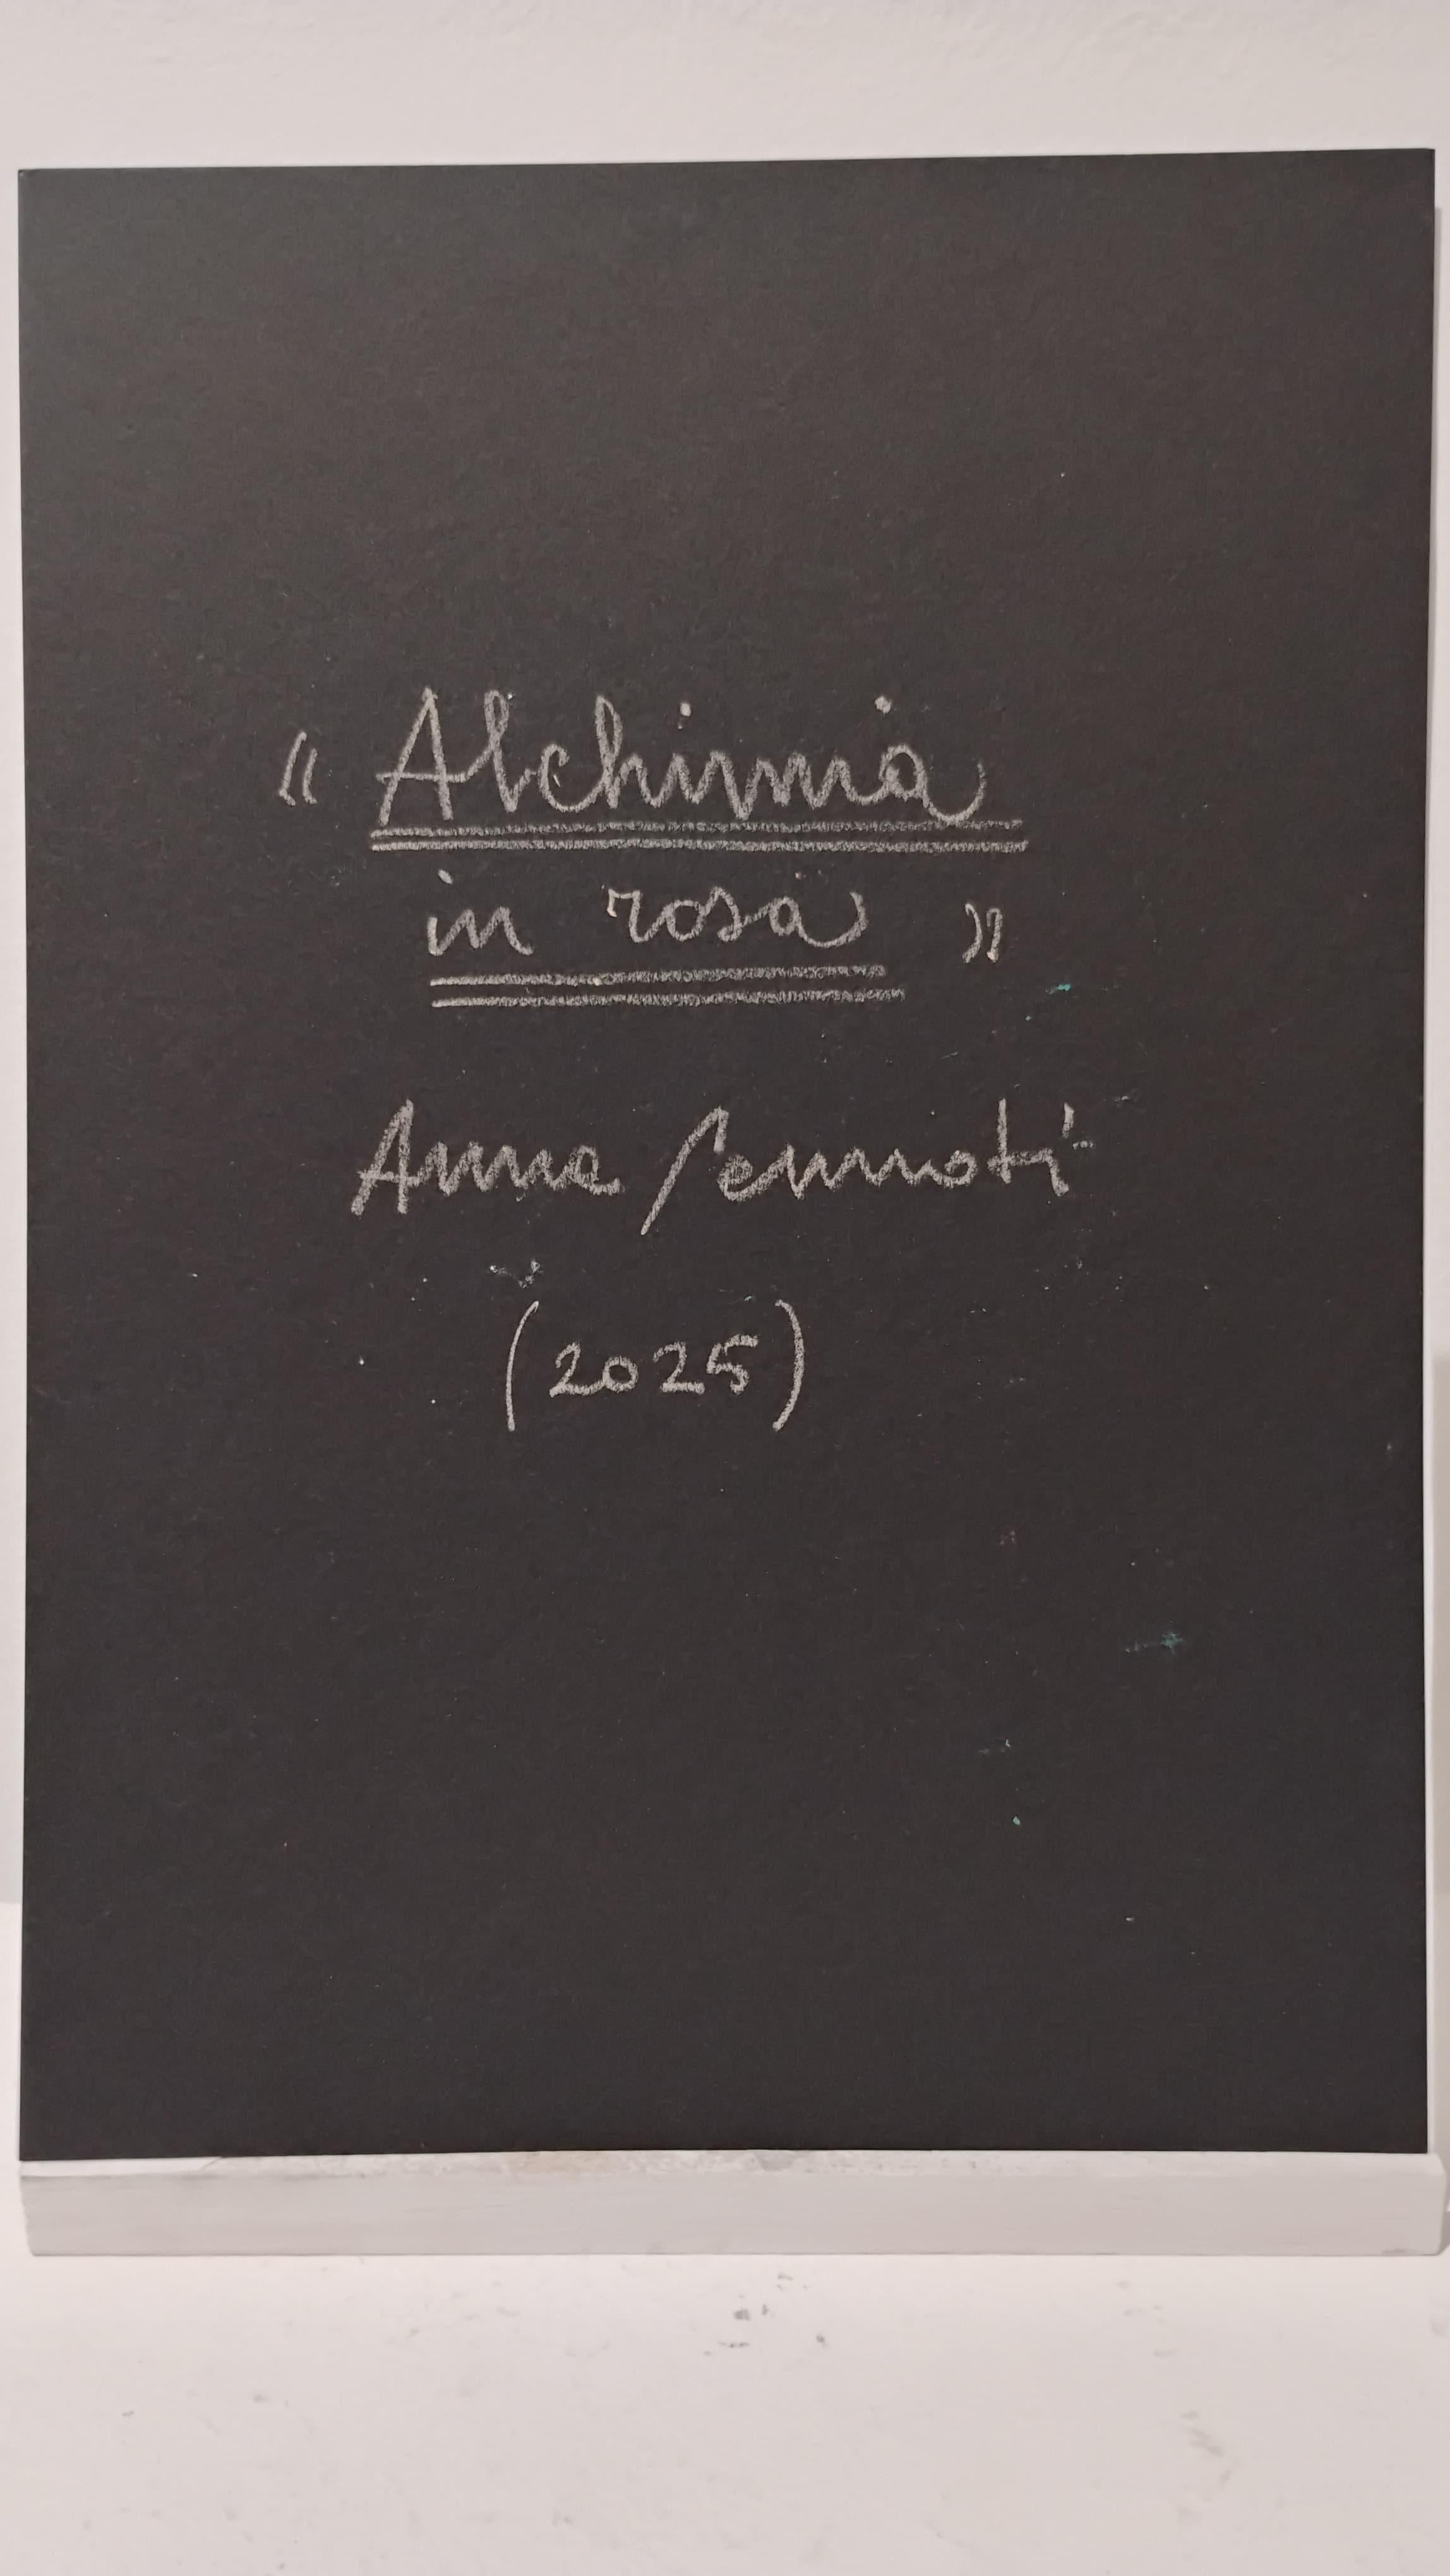 “ Alchimia
in rosa ”
Anna
(2025)